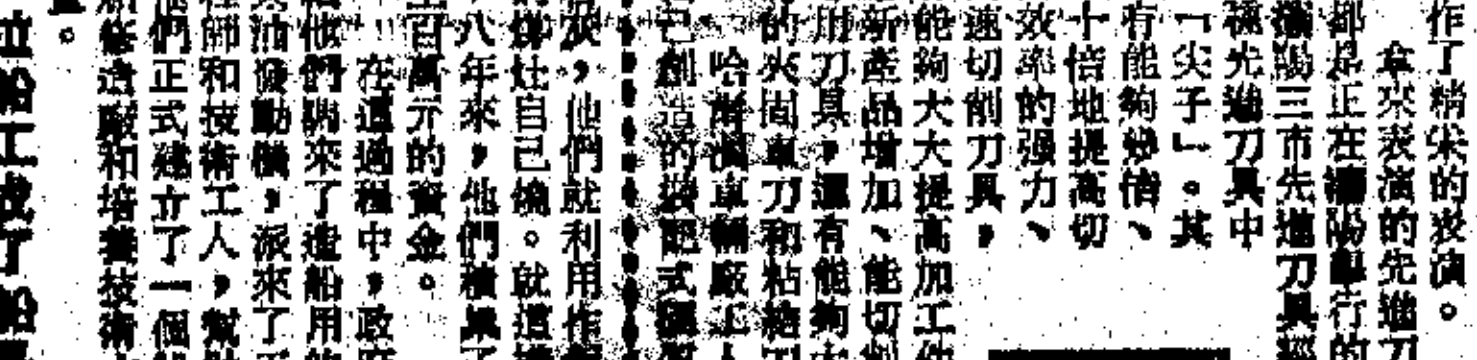 作了精采的表演。
拿來表演的先進刀
都是正在瀋陽舉行的
瀋陽三市先進刀具
視先進刀具中
「尖子」。其
有能夠幾倍、
十倍地提高切
效率的强力、
速切削刀具，
能夠大大提高加工
新產品增加、能切削
用刀具，還有能夠
的夾固車刀和
哈爾濱車輛廠工人
己創造的
灰，他們就利用作
煤灶自己燒。就這
八年來，他們積累了
百萬元的資金。
在這過程中，政府
他們調來了造船用的
油發動機，派來了
師和技術工人，幫助
們正式建立了一個
修造廠和培養技術
。
船工成了船